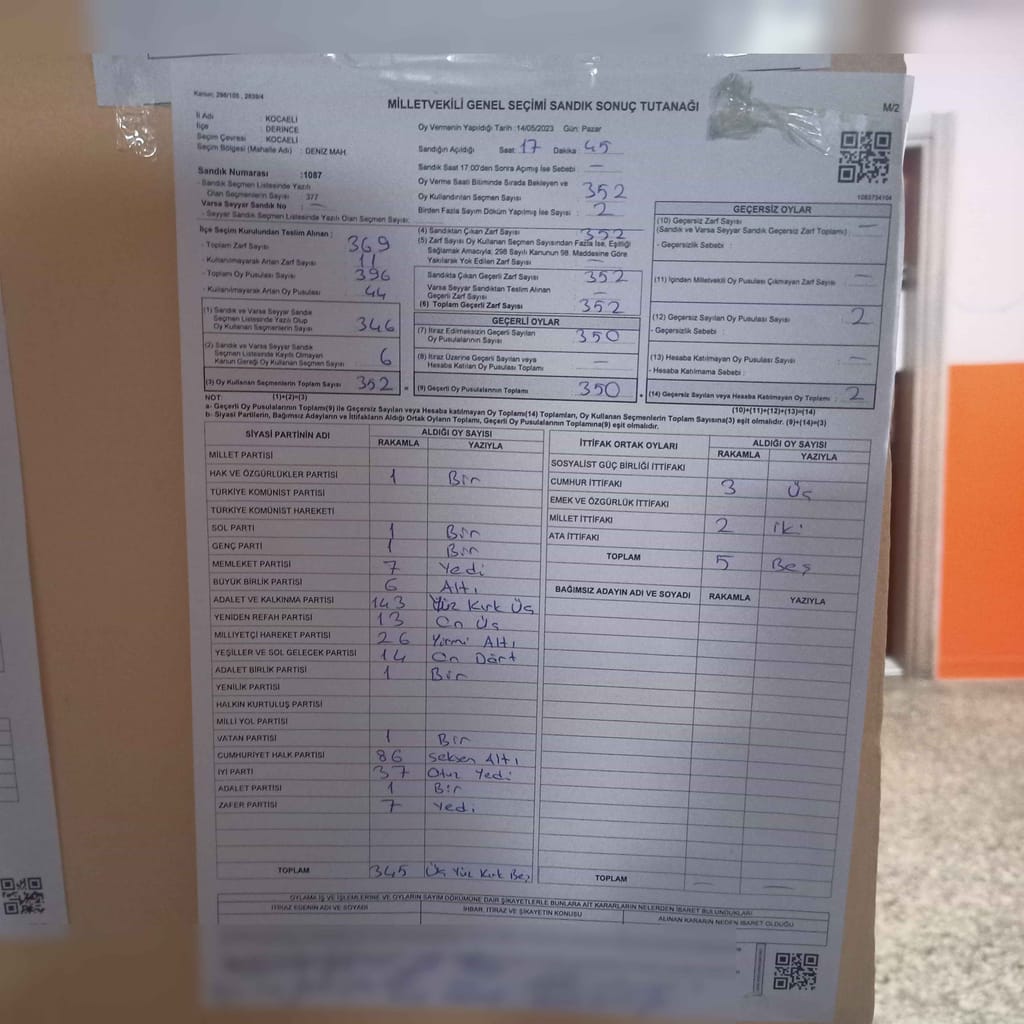 Kanun: 298/105 , 2839/4
MİLLETVEKİLİ GENEL SEÇİMİ SANDIK SONUÇ TUTANAĞI
M/2
İl Adı : KOCAELİ
İlçe : DERİNCE
Seçim Çevresi : KOCAELİ
Seçim Bölgesi (Mahalle Adı) : DENİZ MAH.
Oy Vermenin Yapıldığı Tarih :14/05/2023 Gün: Pazar
Sandığın Açıldığı Saat: 17 Dakika: 45
Sandık Saat 17:00'den Sonra Açılmış İse Sebebi : —
Sandık Numarası :1087
- Sandık Seçmen Listesinde Yazılı
Olan Seçmenlerin Sayısı : 377
Varsa Seyyar Sandık No : —
- Seyyar Sandık Seçmen Listesinde Yazılı Olan Seçmen Sayısı:
Oy Verme Saati Bitiminde Sırada Bekleyen ve
Oy Kullandırılan Seçmen Sayısı : 352
Birden Fazla Sayım Döküm Yapılmış İse Sayısı : 2
İlçe Seçim Kurulundan Teslim Alınan ;
- Toplam Zarf Sayısı : 369
- Kullanılmayarak Artan Zarf Sayısı : 11
- Toplam Oy Pusulası Sayısı : 396
- Kullanılmayarak Artan Oy Pusulası : 44
(1) Sandık ve Varsa Seyyar Sandık
Seçmen Listesinde Yazılı Olup
Oy Kullanan Seçmenlerin Sayısı : 346
(2) Sandık ve Varsa Seyyar Sandık
Seçmen Listesinde Kayıtlı Olmayan
Kanun Gereği Oy Kullanan Seçmen Sayısı : 6
(3) Oy Kullanan Seçmenlerin Toplam Sayısı : 352
(4) Sandıktan Çıkan Zarf Sayısı : 352
(5) Zarf Sayısı Oy Kullanan Seçmen Sayısından Fazla İse, Eşitliği
Sağlamak Amacıyla; 298 Sayılı Kanunun 98. Maddesine Göre
Yakılarak Yok Edilen Zarf Sayısı : —
Sandıkta Çıkan Geçerli Zarf Sayısı : 352
Varsa Seyyar Sandıktan Teslim Alınan
Geçerli Zarf Sayısı : —
(6) Toplam Geçerli Zarf Sayısı : 352
GEÇERLİ OYLAR
(7) İtiraz Edilmeksizin Geçerli Sayılan
Oy Pusulalarının Sayısı : 350
(8) İtiraz Üzerine Geçerli Sayılan veya
Hesaba Katılan Oy Pusulası Toplamı : —
(9) Geçerli Oy Pusulalarının Toplamı : 350
1083734104
GEÇERSİZ OYLAR
(10) Geçersiz Zarf Sayısı
(Sandık ve Varsa Seyyar Sandık Geçersiz Zarf Toplamı) : —
- Geçersizlik Sebebi :
(11) İçinden Milletvekili Oy Pusulası Çıkmayan Zarf Sayısı : —
(12) Geçersiz Sayılan Oy Pusulası Sayısı : 2
- Geçersizlik Sebebi :
(13) Hesaba Katılmayan Oy Pusulası Sayısı : —
- Hesaba Katılmama Sebebi :
(14) Geçersiz Sayılan veya Hesaba Katılmayan Oy Toplamı : 2
NOT: (1)+(2)=(3) (10)+(11)+(12)+(13)=(14)
a- Geçerli Oy Pusulalarının Toplamı(9) ile Geçersiz Sayılan veya Hesaba katılmayan Oy Toplam(14) Toplamları, Oy Kullanan Seçmenlerin Toplam Sayısına(3) eşit olmalıdır. (9)+(14)=(3)
b- Siyasi Partilerin, Bağımsız Adayların ve İttifakların Aldığı Ortak Oyların Toplamı, Geçerli Oy Pusulalarının Toplamına(9) eşit olmalıdır.
SİYASİ PARTİNİN ADI ALDIĞI OY SAYISI
RAKAMLA YAZIYLA
MİLLET PARTİSİ
HAK VE ÖZGÜRLÜKLER PARTİSİ 1 Bir
TÜRKİYE KOMÜNİST PARTİSİ
TÜRKİYE KOMÜNİST HAREKETİ
SOL PARTİ 1 Bir
GENÇ PARTİ 1 Bir
MEMLEKET PARTİSİ 7 Yedi
BÜYÜK BİRLİK PARTİSİ 6 Altı
ADALET VE KALKINMA PARTİSİ 143 Yüz Kırk Üç
YENİDEN REFAH PARTİSİ 13 On Üç
MİLLİYETÇİ HAREKET PARTİSİ 26 Yirmi Altı
YEŞİLLER VE SOL GELECEK PARTİSİ 14 On Dört
ADALET BİRLİK PARTİSİ 1 Bir
YENİLİK PARTİSİ
HALKIN KURTULUŞ PARTİSİ
MİLLİ YOL PARTİSİ
VATAN PARTİSİ 1 Bir
CUMHURİYET HALK PARTİSİ 86 Seksen Altı
İYİ PARTİ 37 Otuz Yedi
ADALET PARTİSİ 1 Bir
ZAFER PARTİSİ 7 Yedi
TOPLAM 345 Üç Yüz Kırk Beş
İTTİFAK ORTAK OYLARI ALDIĞI OY SAYISI
RAKAMLA YAZIYLA
SOSYALİST GÜÇ BİRLİĞİ İTTİFAKI
CUMHUR İTTİFAKI 3 Üç
EMEK VE ÖZGÜRLÜK İTTİFAKI
MİLLET İTTİFAKI 2 iki
ATA İTTİFAKI
TOPLAM 5 Beş
BAĞIMSIZ ADAYIN ADI VE SOYADI RAKAMLA YAZIYLA
TOPLAM — —
OYLAMA İŞ VE İŞLEMLERİNE VE OYLARIN SAYIM DÖKÜMÜNE DAİR ŞİKAYETLERLE BUNLARA AİT KARARLARIN NELERDEN İBARET BULUNDUKLARI
İTİRAZ EDENİN ADI VE SOYADI İHBAR, İTİRAZ VE ŞİKAYETİN KONUSU ALINAN KARARIN NEDEN İBARET OLDUĞU